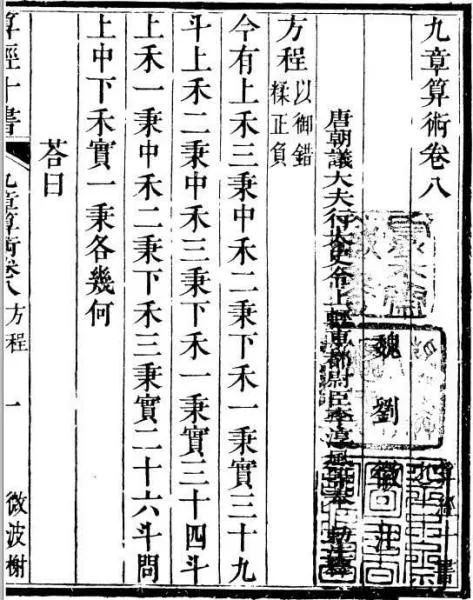 九章算術卷八
魏劉徽注
唐朝議大夫行太史令上輕車都尉臣李淳風等奉勅注釋
方程以御錯糅正負
今有上禾三秉中禾二秉下禾一秉實三十九
斗上禾二秉中禾三秉下禾一秉實三十四斗
上禾一秉中禾二秉下禾三秉實二十六斗問
上中下禾實一秉各幾何
荅曰
算經十書
九章算術卷八 方程 一 微波榭